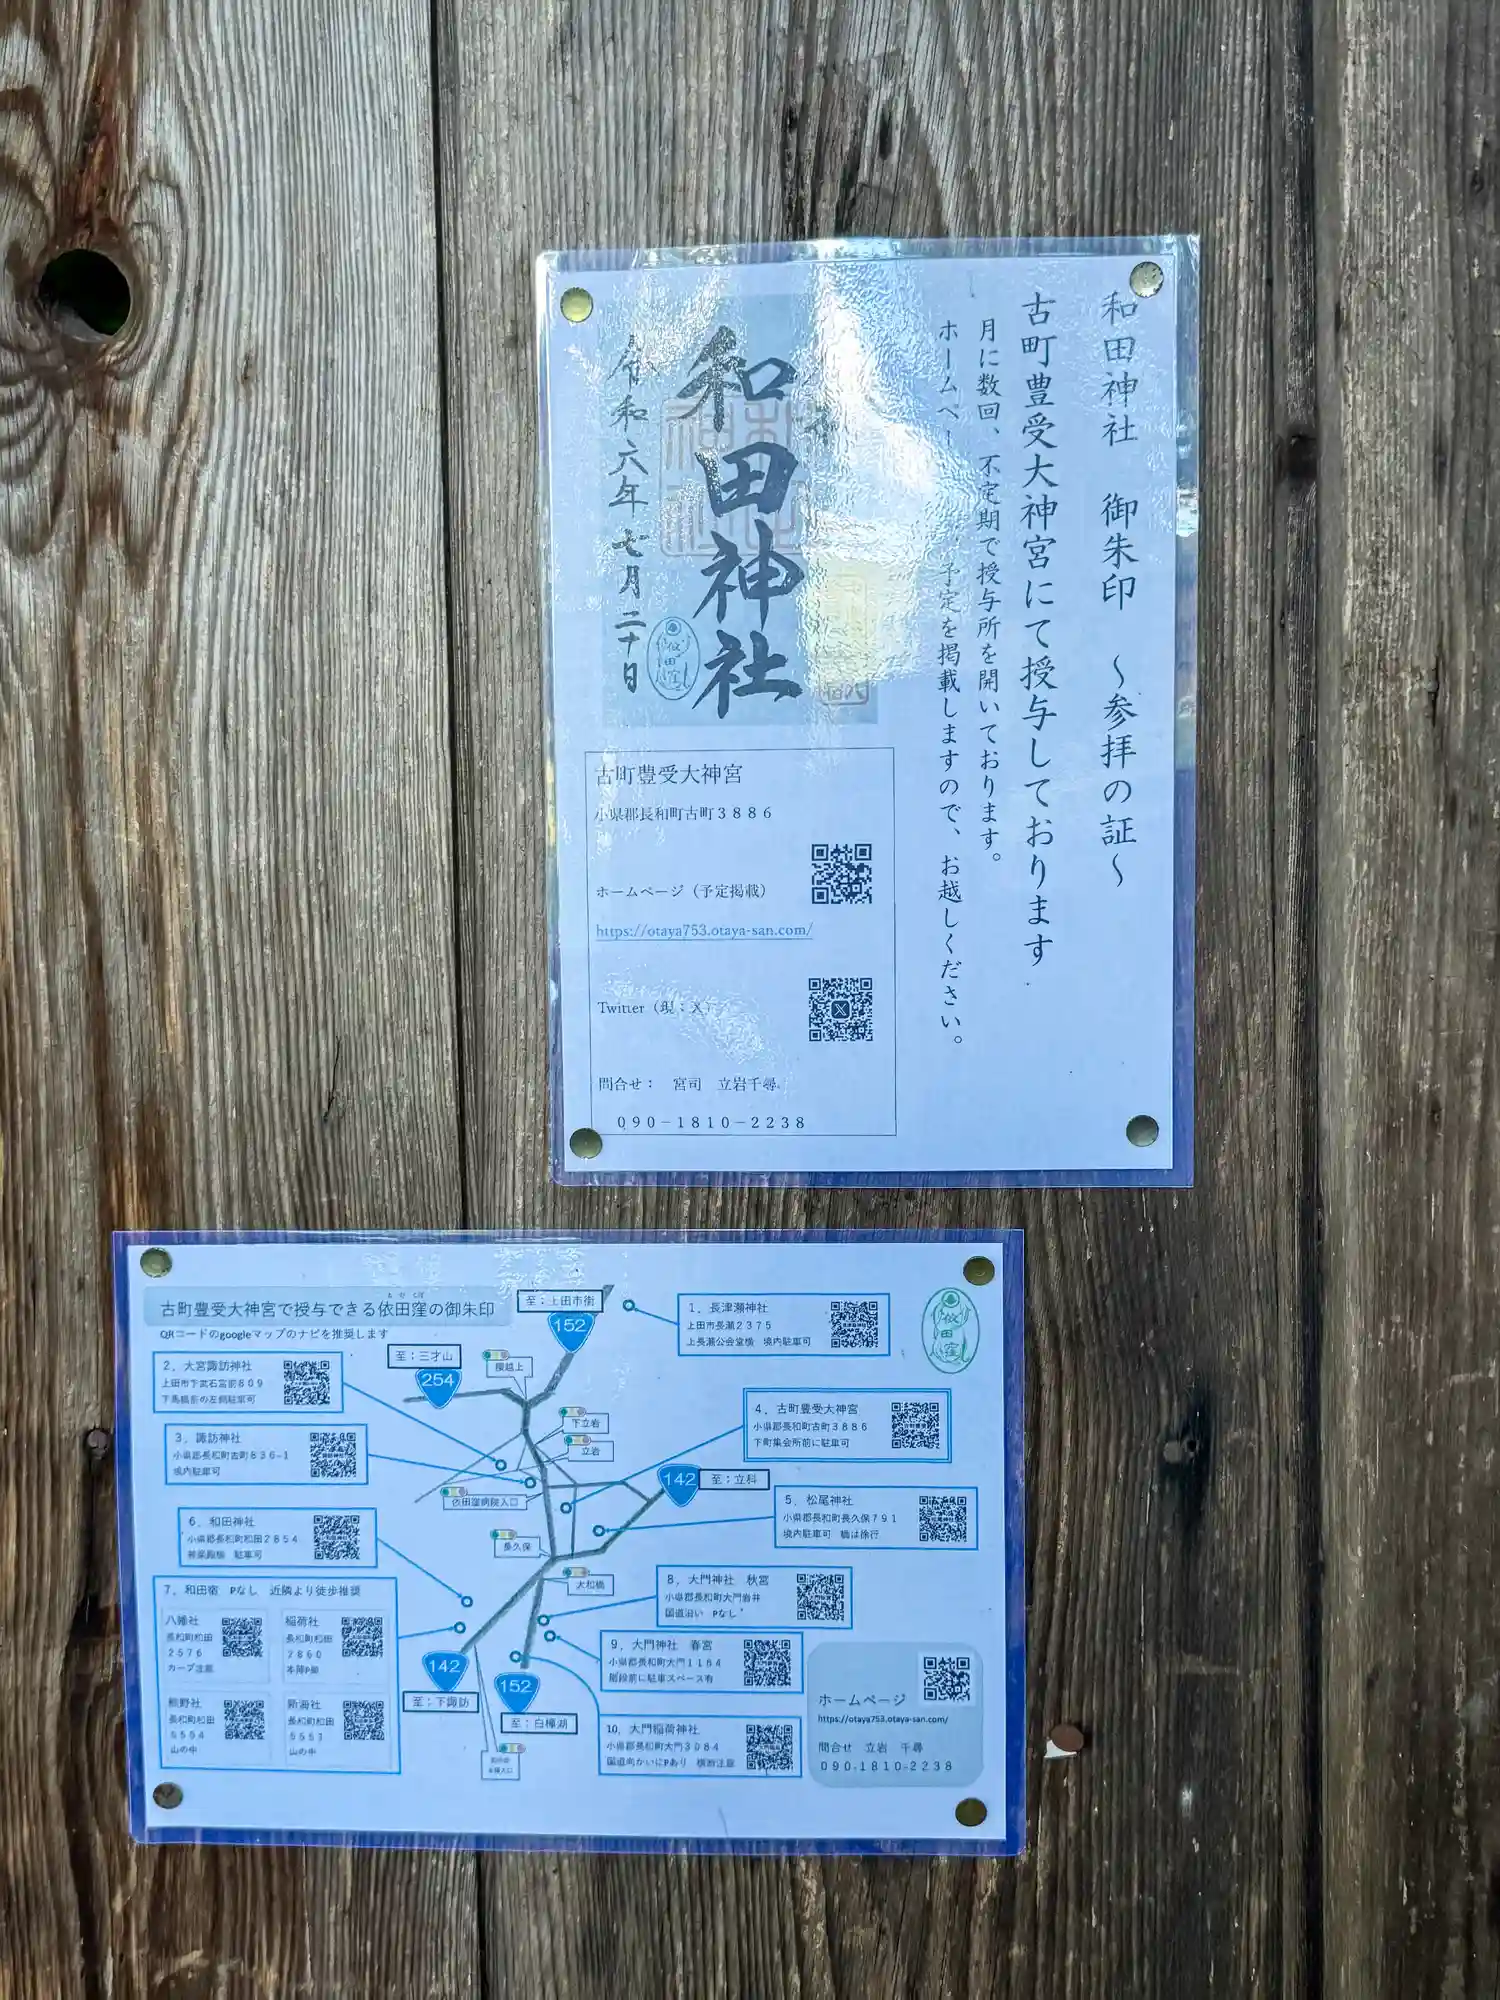 和田神社　御朱印　～参拝の証～
古町豊受大神宮にて授与しております
月に数回、不定期で授与所を開いております。
ホームページ 予定を掲載しますので、お越しください。
和田神社
令和六年七月二十日
依田窪
古町豊受大神宮
小県郡長和町古町３８８６
ホームページ（予定掲載）
https://otaya753.otaya-san.com/
Twitter（現：X）
問合せ：　宮司　立岩千尋
０９０－１８１０－２２３８
古町豊受大神宮で授与できる依田窪の御朱印
QRコードのgoogleマップのナビを推奨します
至：上田市街
152
至：三才山
254
腰越上
下立岩
立岩
依田窪病院入口
142
至：立科
長久保
大和橋
142
至：下諏訪
152
至：白樺湖
依田窪
1．長津瀬神社
上田市長瀬２３７５
上長瀬公会堂横　境内駐車可
2．大宮諏訪神社
上田市下武石宮前８０９
下馬橋前の左側駐車可
3．諏訪神社
小県郡長和町古町８３６-１
境内駐車可
4．古町豊受大神宮
小県郡長和町古町３８８６
下町集会所前に駐車可
5．松尾神社
小県郡長和町長久保７９１
境内駐車可　橋は徐行
6．和田神社
小県郡長和町和田２８５４
神楽殿横　駐車可
7．和田宿　Pなし　近隣より徒歩推奨
八幡社
長和町和田
２５７６
カーブ注意
稲荷社
長和町和田
２８６０
本陣P側
熊野社
長和町和田
５５５４
山の中
新海社
長和町和田
５５５３
山の中
8．大門神社　秋宮
小県郡長和町大門岩井
国道沿い　Pなし
9．大門神社　春宮
小県郡長和町大門１１５４
階段前に駐車スペース有
10．大門稲荷神社
小県郡長和町大門３０８４
国道向かいにPあり　横断注意
ホームページ
https://otaya753.otaya-san.com/
問合せ　立岩　千尋
０９０-１８１０-２２３８